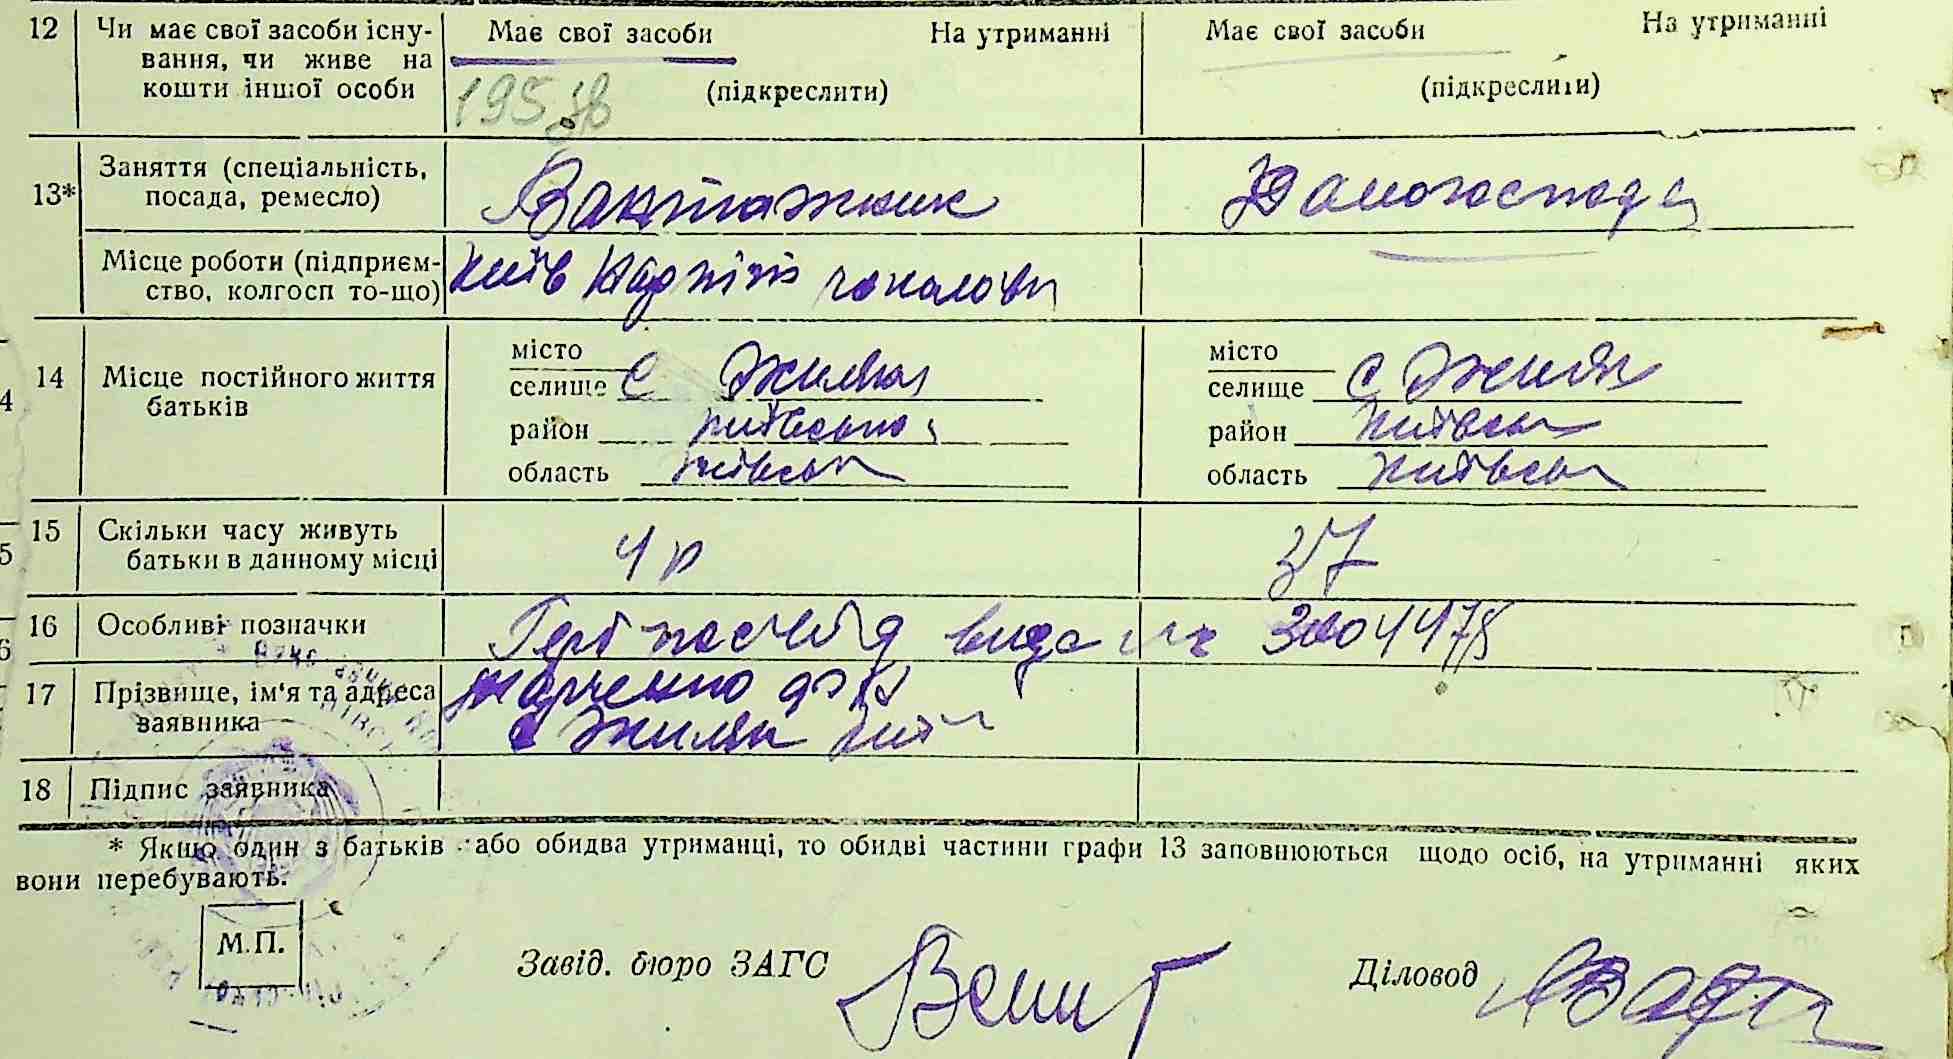 12 Чи має свої засоби існу- Має свої засоби На утриманні Має свої засоби На утриманні
вання, чи живе на
кошти іншої особи 195 (підкреслити) (підкреслити)
13* Заняття (спеціальність,
посада, ремесло) Вантажник Домогоспода
Місце роботи (підприєм- Київ
ство, колгосп то-що)
місто місто
14 Місце постійного життя селище с Жиляни селище с Жиляни
батьків район Київська район Київськ
область Київськ область Київськ
15 Скільки часу живуть 4 р 37
батьки в данному місці
16 Особливі позначки Герб посвід вида № 3004478
17 Прізвище, ім'я та адреса Марченко
заявника с Жиляни Київ
18 Підпис заявника
* Якщо один з батьків або обидва утриманці, то обидві частини графи 13 заповнюються щодо осіб, на утриманні яких
вони перебувають.
М.П. Завід. бюро ЗАГС Діловод